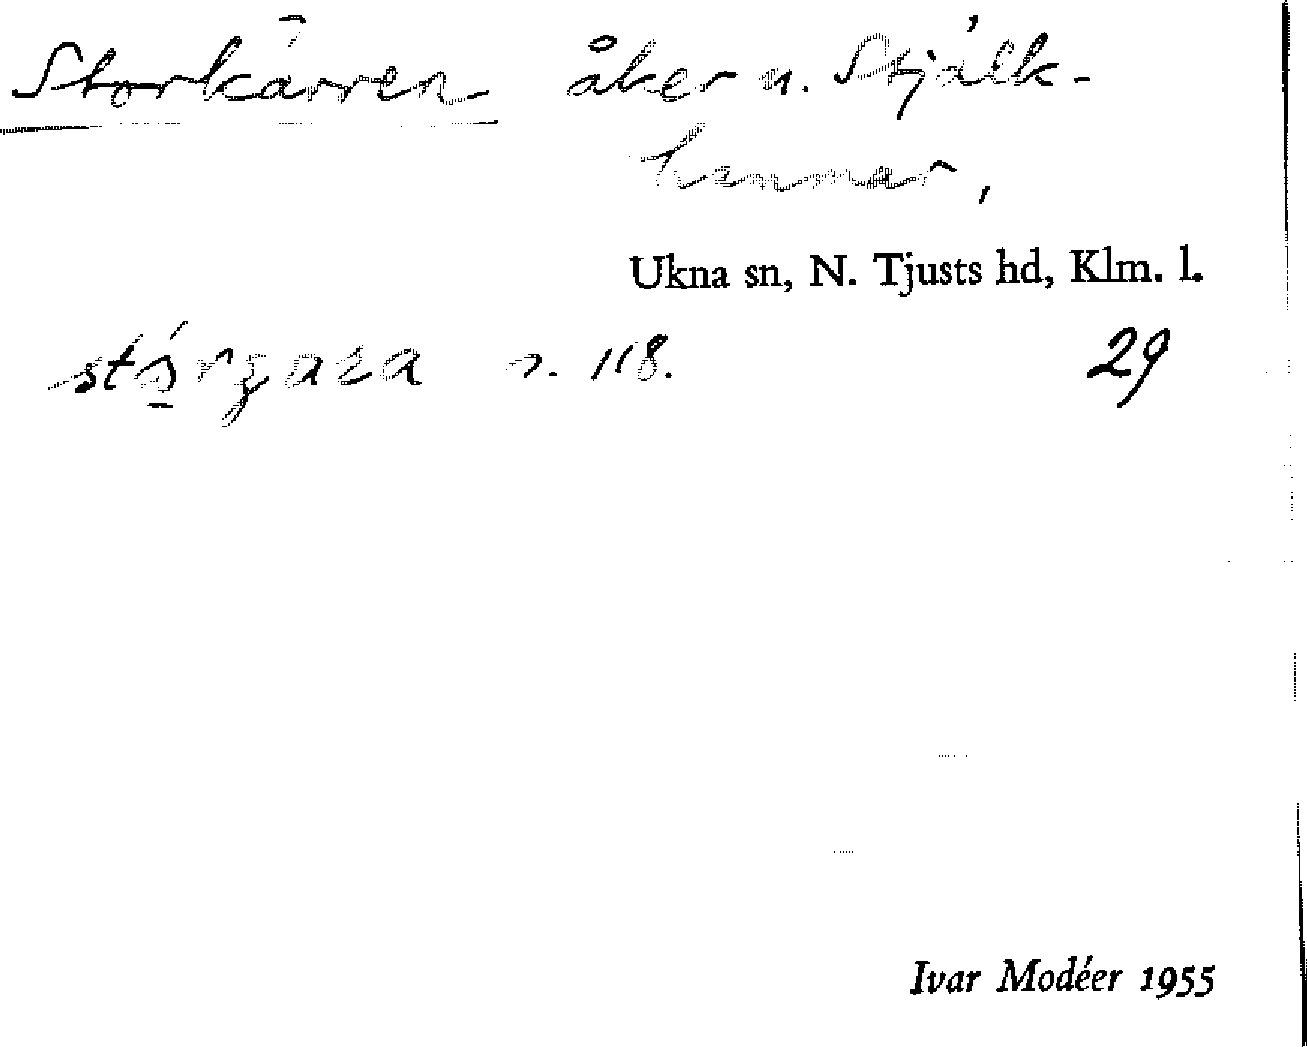 Storkärren åker u. Stjälk-
hammar,
Ukna sn, N. Tjusts hd, Klm. l.
s. 118. 29
Ivar Modéer 1955